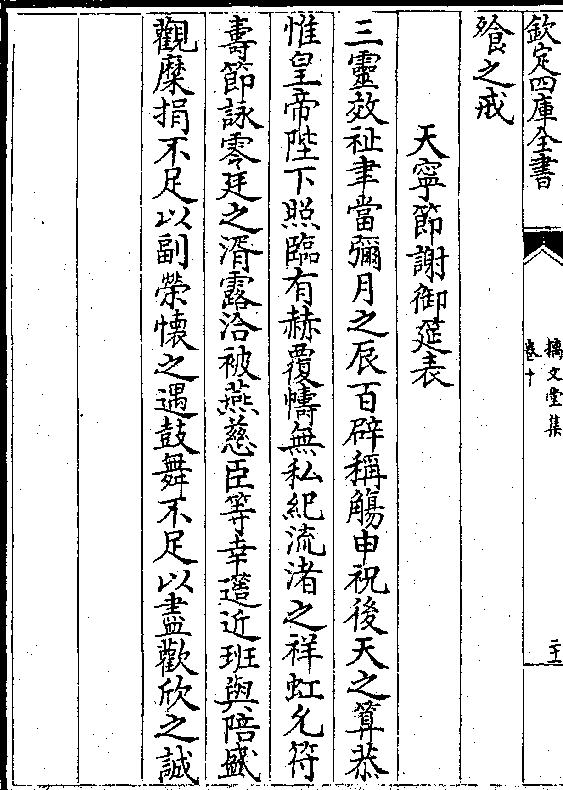 欽定四庫全書
摛文堂集
卷十
二十一
飱之戒
天寧節謝御筵表
三靈效祉聿當彌月之辰百辟稱觴申祝後天之算恭
惟皇帝陛下照臨有赫覆幬無私紀流渚之祥虹允符
壽節詠零廷之湑露洽被燕慈臣等幸簉近班與陪盛
觀糜捐不足以副榮懷之遇鼓舞不足以盡歡欣之誠